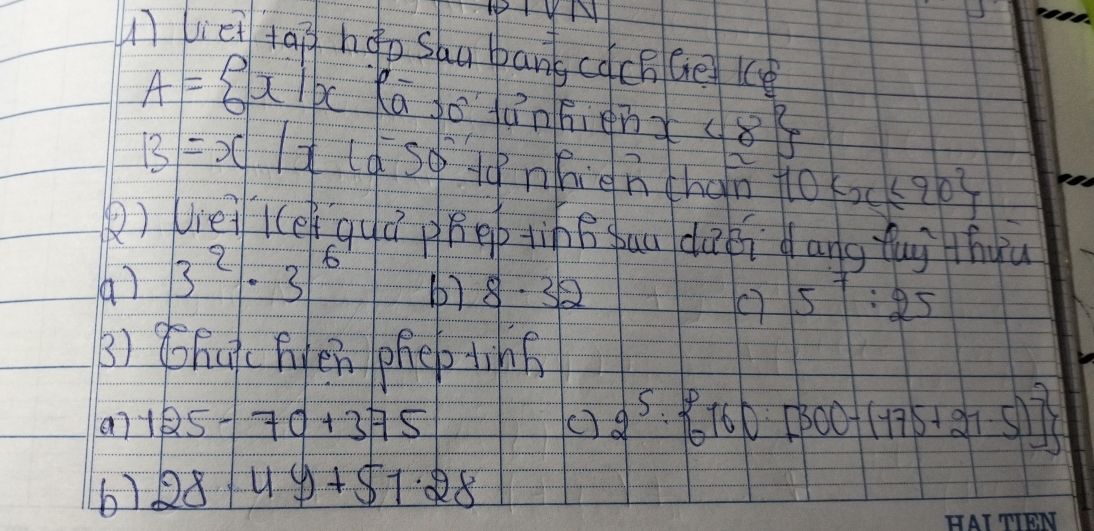 1) Viết tập hợp sau bằng cách liệt kê
A = {x / x là số tự nhiên x < 8}
B = x / x là số tự nhiên chẵn 10 < x < 20}
2) Viết kết quả phép tính sau dưới dạng luỹ thừa
a) 3² . 3⁶ b) 8 . 32 c) 5⁷ : 25
3) Thực hiện phép tính
a) 125 - 70 + 375 c) 2⁵ . {160 : [300 - (175 + 21 . 5)]}
b) 28 . 49 + 51 . 28
HẢI TIẾN